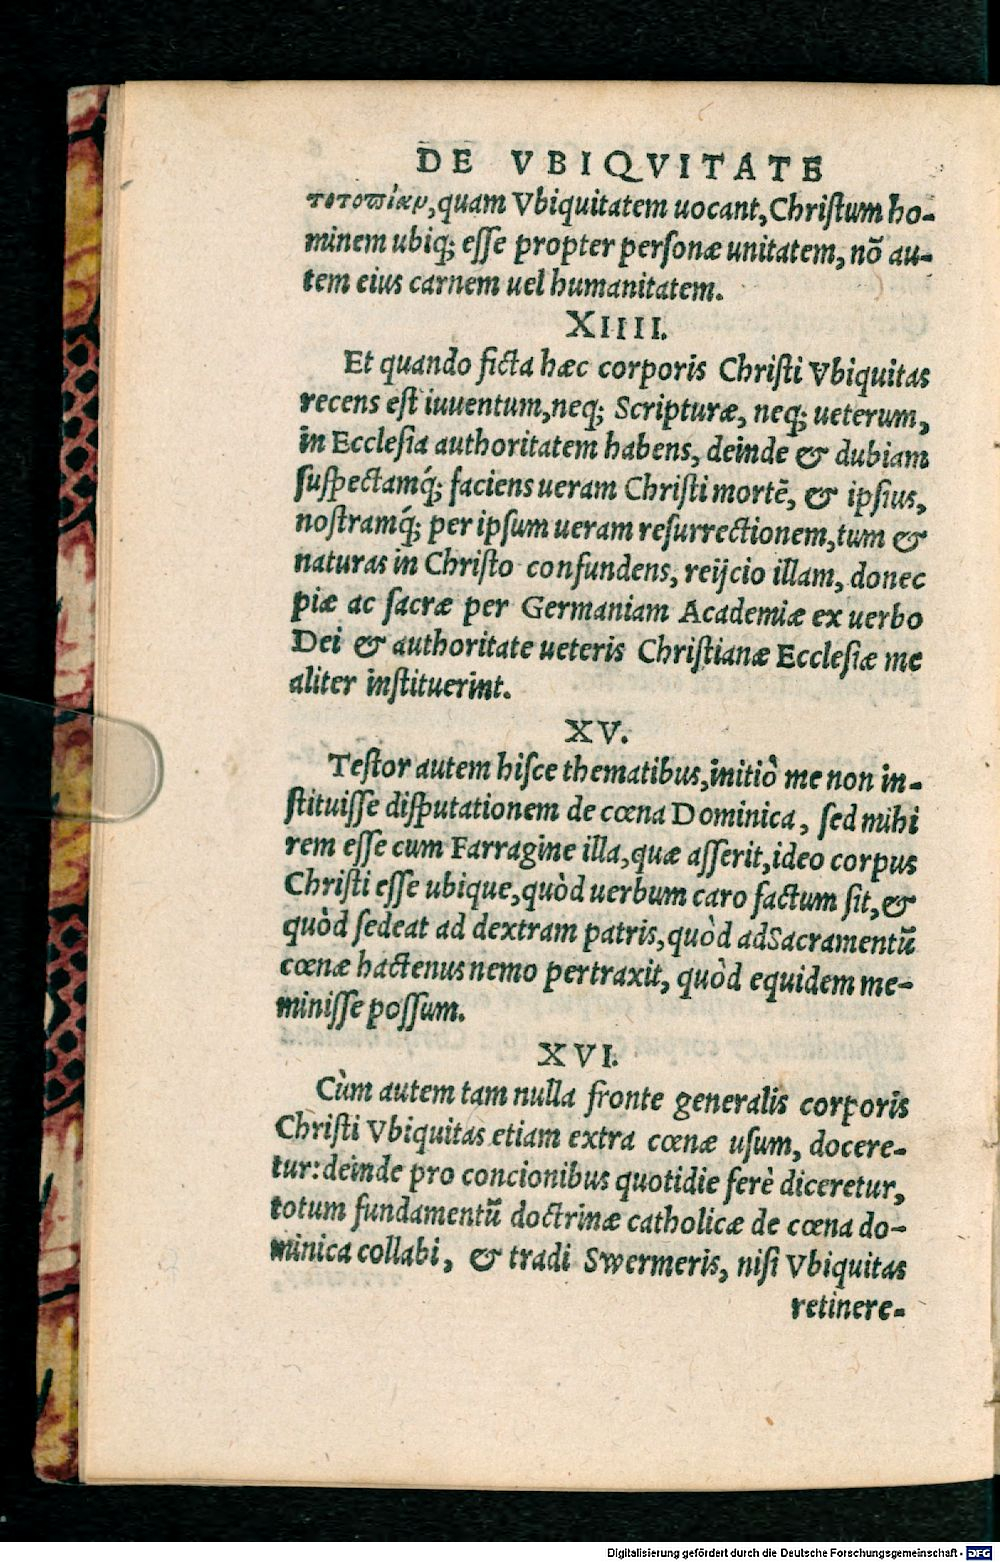 DE VBIQVITATE
τοτοπίαν, quam Vbiquitatem uocant, Christum ho-
minem ubiq; esse propter personæ unitatem, nõ au-
tem eius carnem uel humanitatem.
XIIII.
Et quando ficta hæc corporis Christi Vbiquitas
recens est iuuentum, neq; Scripturæ, neq; ueterum,
in Ecclesia authoritatem habens, deinde & dubiam
suspectamq́; faciens ueram Christi mortẽ, & ipsius,
nostramq́; per ipsum ueram resurrectionem, tum &
naturas in Christo confundens, reijcio illam, donec
piæ ac sacræ per Germaniam Academiæ ex uerbo
Dei & authoritate ueteris Christianæ Ecclesiæ me
aliter instituerint.
XV.
Testor autem hisce thematibus, initiò me non in-
stituisse disputationem de cœna Dominica, sed mihi
rem esse cum Farragine illa, quæ asserit, ideo corpus
Christi esse ubique, quòd uerbum caro factum sit, &
quòd sedeat ad dextram patris, quòd ad Sacramentũ
cœnæ hactenus nemo pertraxit, quòd equidem me-
minisse possum.
XVI.
Cùm autem tam nulla fronte generalis corporis
Christi Vbiquitas etiam extra cœnæ usum, docere-
tur: deinde pro concionibus quotidie ferè diceretur,
totum fundamentũ doctrinæ catholicæ de cœna do-
minica collabi, & tradi Swermeris, nisi Vbiquitas
retinere-
Digitalisierung gefördert durch die Deutsche Forschungsgemeinschaft - DFG